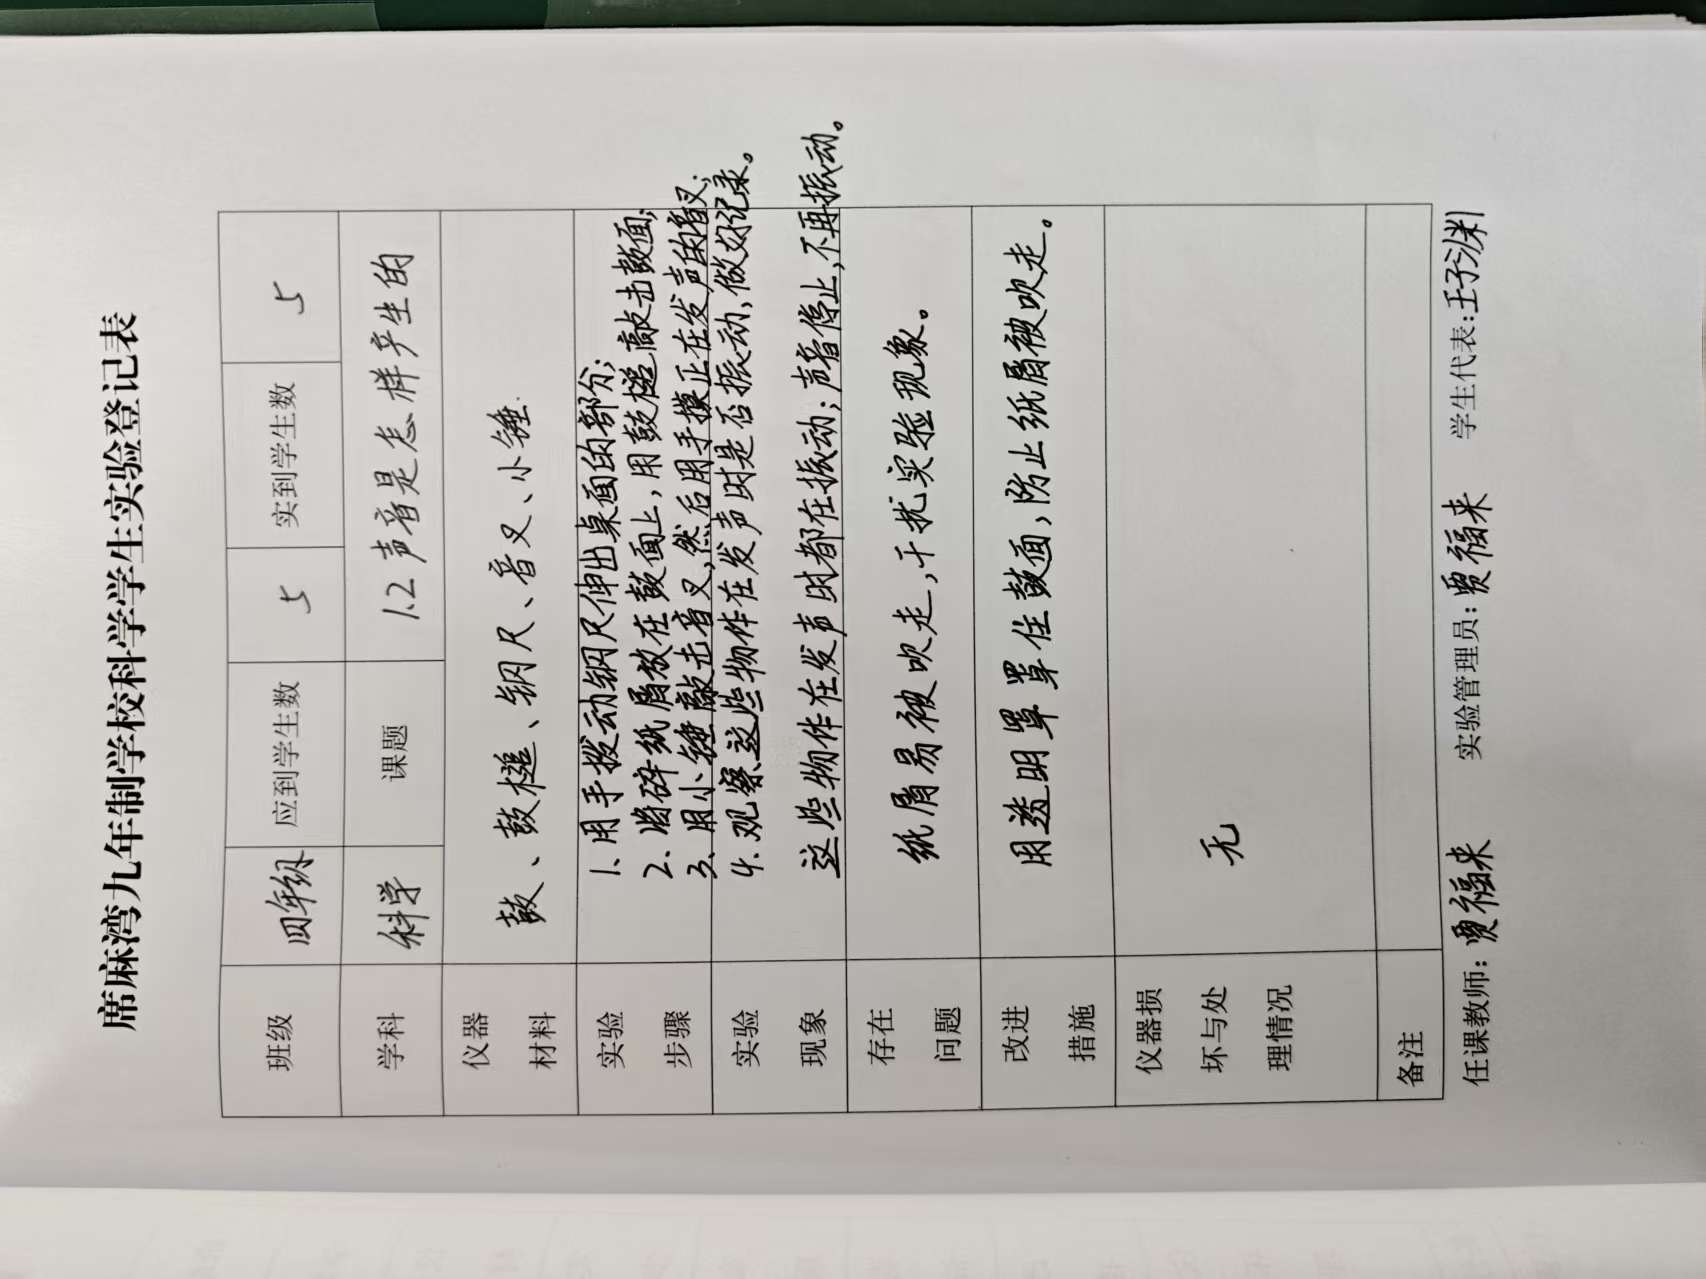 席麻湾九年制学校科学学生实验登记表
班级 四年级 应到学生数 5 实到学生数 5
学科 科学 课题 1.2 声音是怎样产生的
仪器材料 鼓、鼓槌、钢尺、音叉、小锤.
实验步骤 1. 用手拨动钢尺伸出桌面的部分;
2. 将碎纸屑放在鼓面上,用鼓槌敲击鼓面;
3. 用小锤敲击音叉,然后用手摸正在发声的音叉;
4. 观察这些物体在发声时是否振动,做好记录。
实验现象 这些物体在发声时都在振动;声音停止,不再振动。
存在问题 纸屑易被吹走,干扰实验现象。
改进措施 用透明罩罩住鼓面,防止纸屑被吹走。
仪器损坏与处理情况 无
备注
任课教师:贾福来 实验管理员:贾福来 学生代表:王子渊